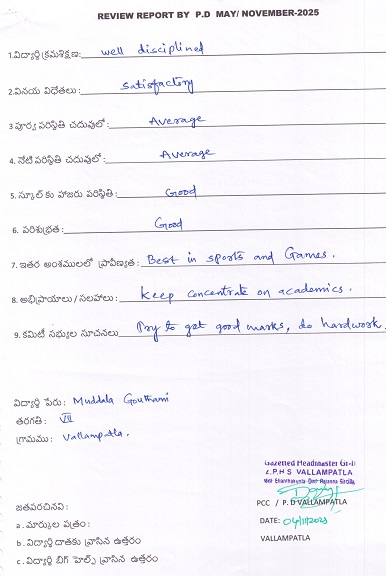 REVIEW REPORT BY P.D MAY/ NOVEMBER-2025
1.విద్యార్థి క్రమశిక్షణ: well disciplined
2.వినయ విధేతలు: satisfactory
3 పూర్వ పరిస్థితి చదువులో: Average
4. నేటి పరిస్థితి చదువులో: Average
5. స్కూల్ కు హాజరు పరిస్థితి: Good
6. పరిశుభ్రత: Good
7. ఇతర అంశములలో ప్రావీణ్యత: Best in sports and Games.
8. అభిప్రాయాలు / సలహాలు: Keep concentrate on academics.
9. కమిటీ సభ్యుల సూచనలు Try to get good marks, do hardwork.
విద్యార్థి పేరు: Muddala Gouthami
తరగతి: VII
గ్రామము: Vallampatla.
Gazetted Headmaster Gr-II
Z.P.H S VALLAMPATLA
Mdl Ellanthakunta Dist Rajanna Sircilla
PCC / P.D VALLAMPATLA
DATE:
VALLAMPATLA
జతపరచినవి:
a. మార్కుల పత్రం:
b. విద్యార్థి దాతకు వ్రాసిన ఉత్తరం
c. విద్యార్థి బిగ్ హెల్ప్ వ్రాసిన ఉత్తరం